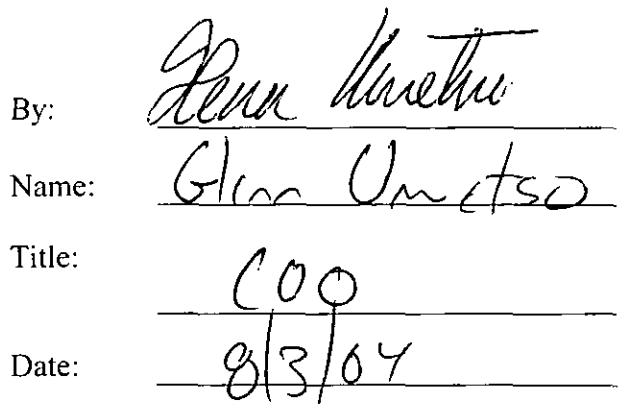 By: Glenn Umetsu
Name: Glenn Umetsu
Title: COO
Date: 8/3/04